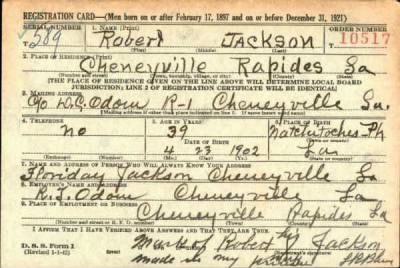 REGISTRATION CARD—(Men born on or after February 17, 1897 and on or before December 31, 1921)
SERIAL NUMBER 1. NAME (Print) ORDER NUMBER
T 589 Robert JACKSON 10517
(First) (Middle) (Last)
2. PLACE OF RESIDENCE (Print)
Cheneyville Rapides La
(Number and street) (Town, township, village, or city) (County) (State)
[THE PLACE OF RESIDENCE GIVEN ON THE LINE ABOVE WILL DETERMINE LOCAL BOARD
JURISDICTION; LINE 2 OF REGISTRATION CERTIFICATE WILL BE IDENTICAL]
3. MAILING ADDRESS
C/o Odom R-1 Cheneyville La.
[Mailing address if other than place indicated on line 2. If same insert word same]
4. TELEPHONE 5. AGE IN YEARS 6. PLACE OF BIRTH
no 39 Natchitoches Ph
DATE OF BIRTH
4 23 1902 La
(Exchange) (Number) (Mo.) (Day) (Yr.) (State or country)
7. NAME AND ADDRESS OF PERSON WHO WILL ALWAYS KNOW YOUR ADDRESS
Floriday Jackson Cheneyville La
8. EMPLOYER'S NAME AND ADDRESS
Odom Cheneyville La
9. PLACE OF EMPLOYMENT OR BUSINESS
Cheneyville Rapides La
(Number and street or R. F. D. number) (Town) (County) (State)
I AFFIRM THAT I HAVE VERIFIED ABOVE ANSWERS AND THAT THEY ARE TRUE.
D. S. S. Form 1 Mark of Robert his Jackson
(Revised 1-1-42) made in my presence